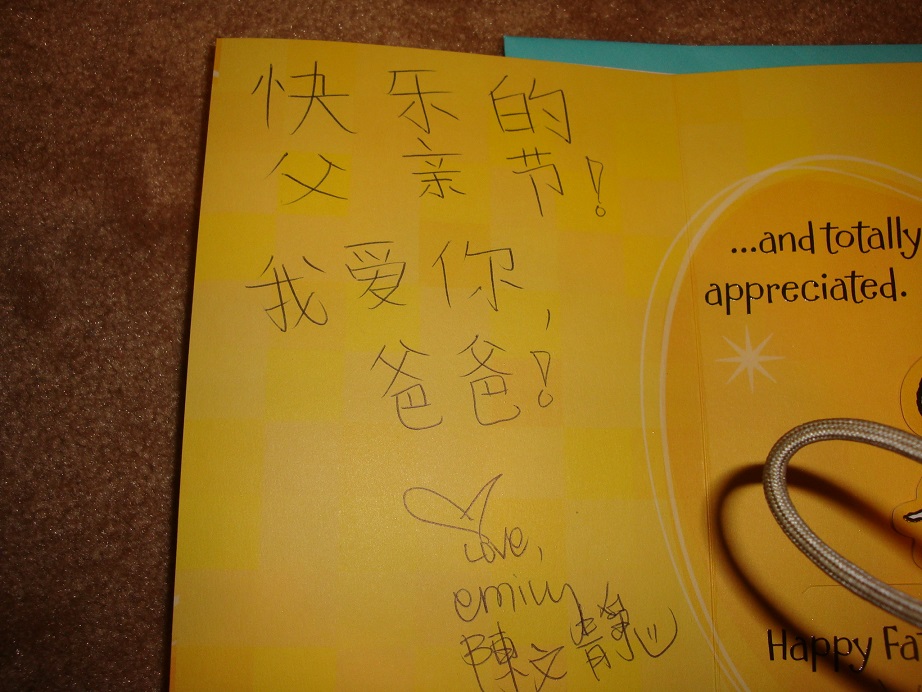 快乐的
父亲节!
我爱你,
爸爸!
Love,
emily
陳文靜
...and totally
appreciated.
Happy Fa